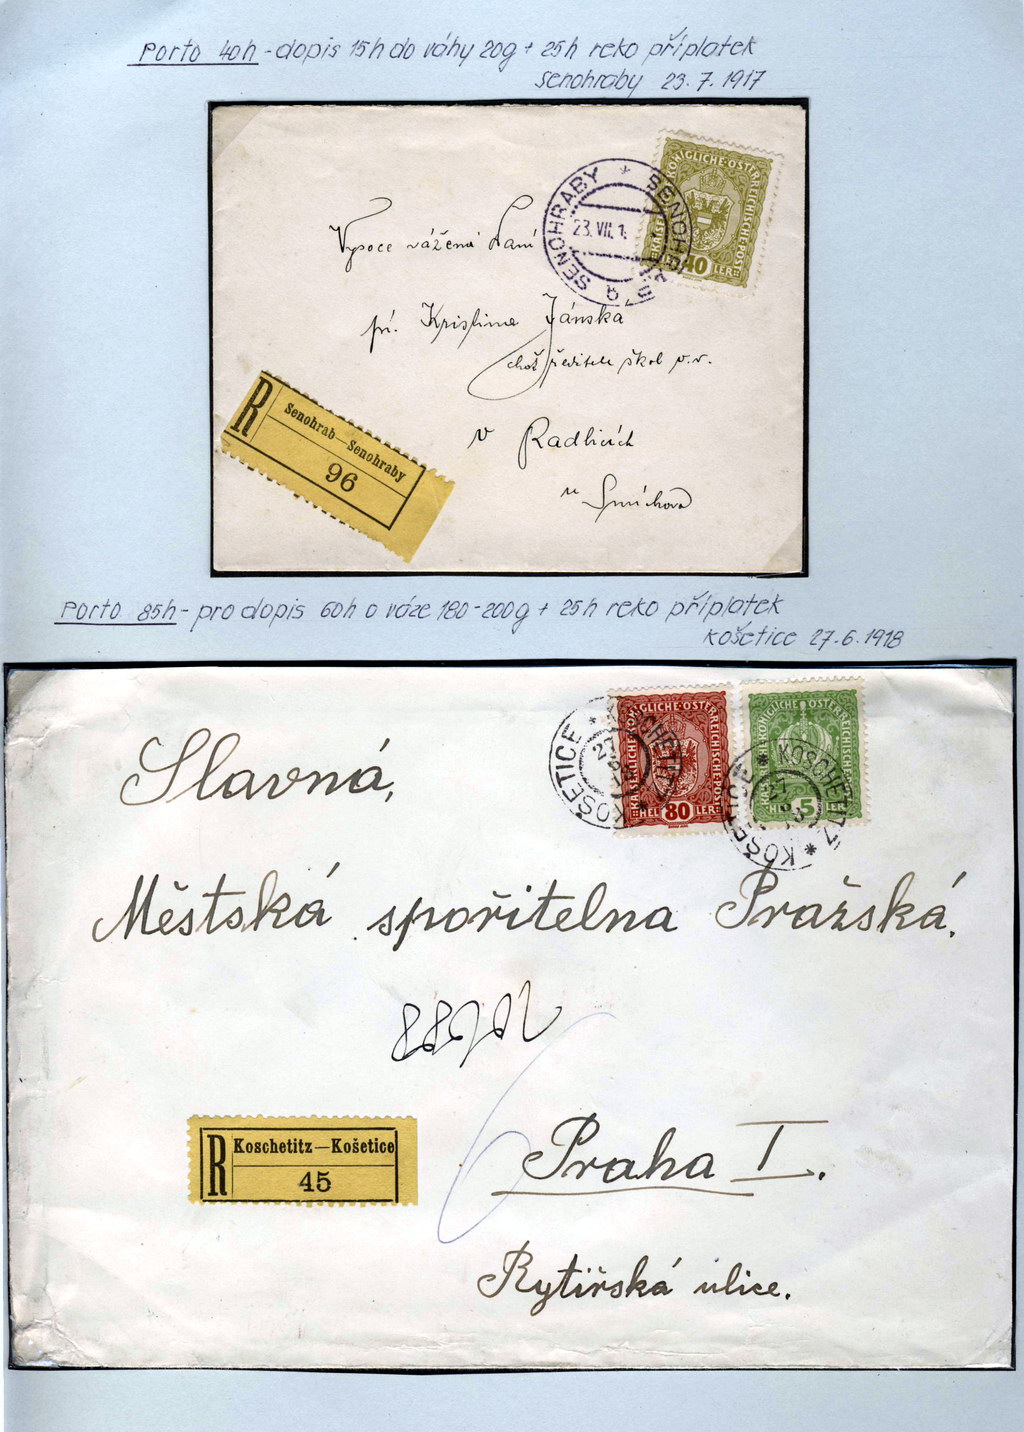 Porto 40h - dopis 15h do váhy 20g + 25h reko příplatek
Senohraby 23.7.1917
KAISERLICHE KÖNIGLICHE ÖSTERREICHISCHE POST
40
HELLER
* SENOHRAB * SENOHRABY
23. VII. 1
a
Vysoce vážená Paní
pí. Kristina Jánska
choť ředitele škol v.v.
v Radlicích
u Smíchova
R
Senohrab—Senohraby
96
Porto 85h - pro dopis 60h o váze 180-200g + 25h reko příplatek
Košetice 27.6.1918
KAISERLICHE KÖNIGLICHE ÖSTERREICHISCHE POST
80
HELLER
5
* KOSCHETITZ * KOŠETICE
27
* KOSCHETITZ * KOŠETICE
27
Slavná,
Městská spořitelna Pražská.
R
Koschetitz—Košetice
45
Praha I.
Rytířská ulice.